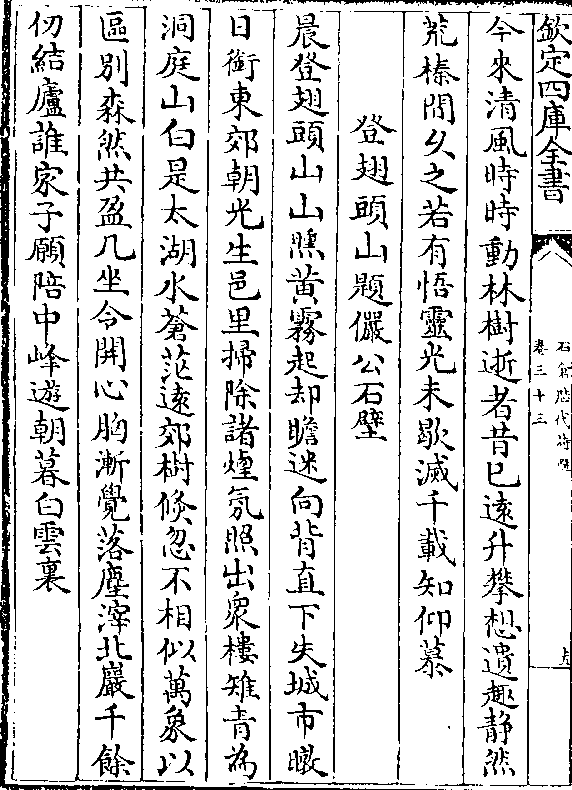 欽定四庫全書
石倉歷代詩選
卷三十三
今來清風時時動林樹逝者昔已遠升攀想遺趣靜然
荒榛間久之若有悟靈光未歇滅千載知仰慕
登翅頭山題儼公石壁
晨登翅頭山山曛黃霧起却瞻迷向背直下失城市暾
日銜東郊朝光生邑里掃除諸煙氛照出衆樓雉青為
洞庭山白是太湖水蒼茫遠郊樹倐忽不相似萬象以
區別森然共盈几坐令開心胸漸覺落塵滓北巖千餘
仞結廬誰家子願陪中峰遊朝暮白雲裏